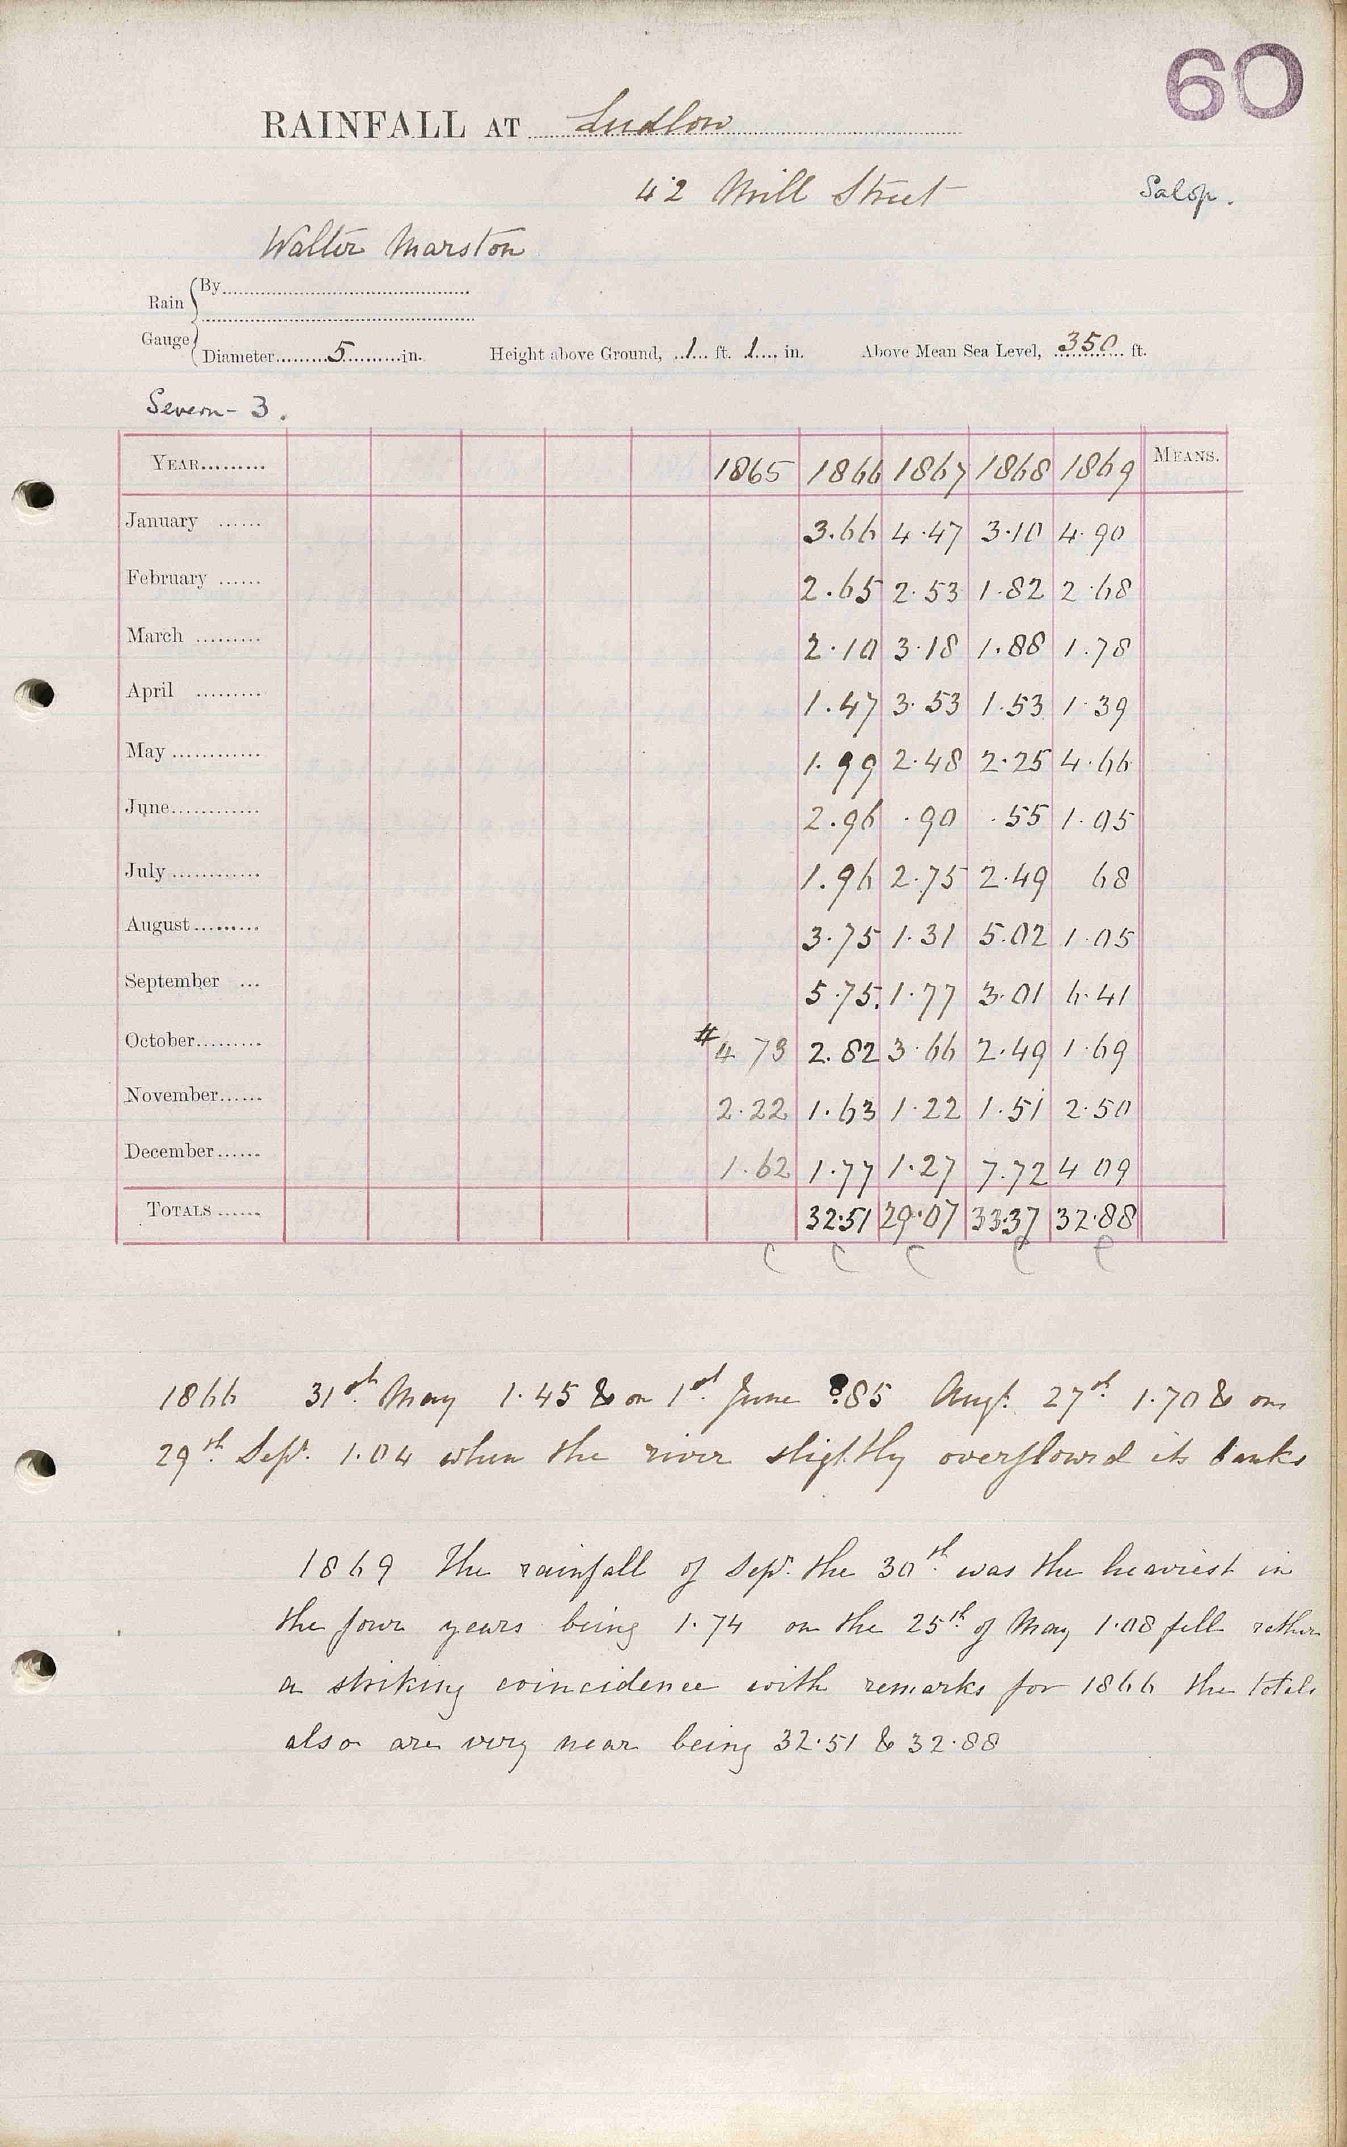 60
RAINFALL AT Ludlow
42 Mill Street Salop.
Walter Marston
Rain Gauge { By
Diameter 5 in. Height above Ground, 1 ft. 1 in. Above Mean Sea Level, 350 ft.
Severn - 3.
YEAR 1865 1866 1867 1868 1869 MEANS.
January 3.66 4.47 3.10 4.90
February 2.65 2.53 1.82 2.68
March 2.10 3.18 1.88 1.78
April 1.47 3.53 1.53 1.39
May 1.99 2.48 2.25 4.66
June 2.96 .90 .55 1.05
July 1.96 2.75 2.49 68
August 3.75 1.31 5.02 1.05
September 5.75 1.77 3.01 6.41
October #4 73 2.82 3.66 2.49 1.69
November 2.22 1.63 1.22 1.51 2.50
December 1.62 1.77 1.27 7.72 4 09
TOTALS 32.51 29.07 33.37 32.88
c c c c e
1866 31st May 1.45 & on 1st June .85 Augt. 27th 1.70 & on
29th Sept. 1.04 when the river slightly overflowed its banks
1869 The rainfall of Sept. the 30th was the heaviest in
the four years being 1.74 on the 25th of May 1.08 fell rather
a striking coincidence with remarks for 1866 the totals
also are very near being 32.51 & 32.88